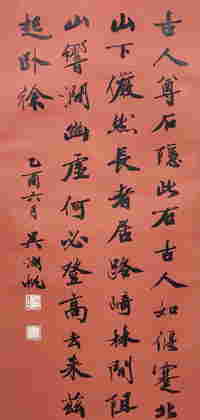 古人尊石隱此石古人如偃蹇北
山下儼然長者居路崎林閒阻
山響澗幽虛何必登高去來茲
起卧徐
乙酉六月吳湖帆